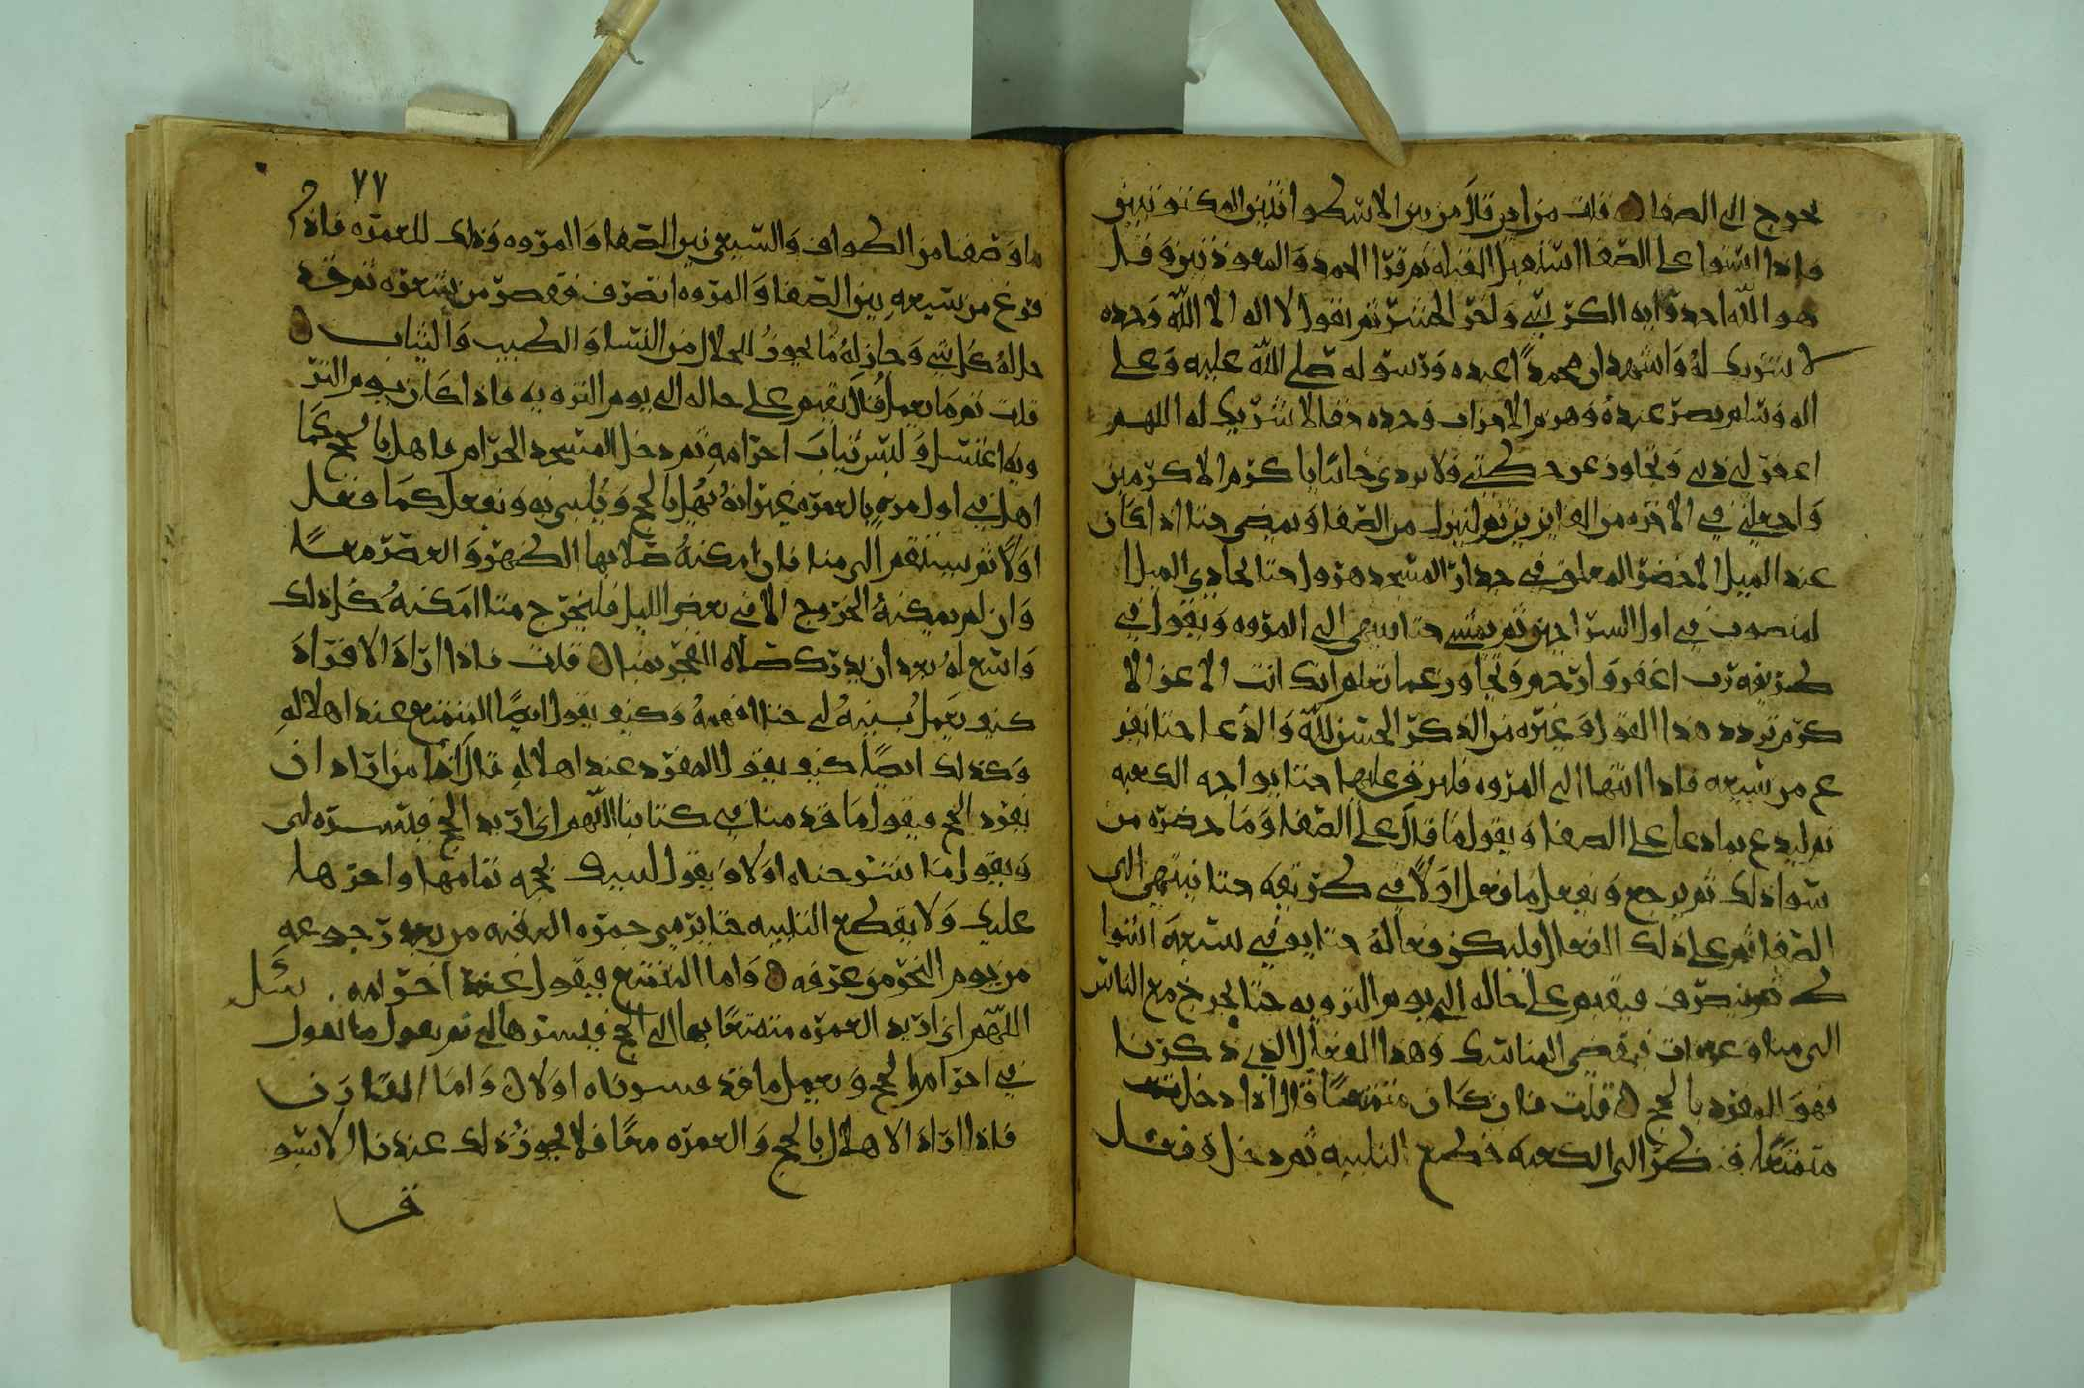 يخرج الى الصفا قلت من اين قال من بين الاسطوانتين المكتوبتين
فاذا استوا على الصفا استقبل القبله ثم قرا الحمد والمعوذتين وقل
هو الله احد وايه الكرسي واخر الحشر ثم يقول لا اله الا الله وحده
لا شريك له واشهد ان محمدا عبده ورسوله صلى الله عليه وعلى
اله وسلم نصر عبده وهزم الاحزاب وحده لا شريك له اللهم
اغفر لي ذنبي وتجاوز عن خطيتي ولا تردني خائبا يا كرم الاكرمين
واجعلني في الاخره من الفايزين ثم لينزل من الصفا ويمضي حتا اذا كان
عند الميل الاخضر المعلق في جدار المسجد هرول حتا يحاذي الميل ا
لمنصوب في اول السراجين ثم يمشي حتا ينتهي الى المروه ويقول في
طريقه رب اغفر وارحم وتجاوز عما تعلم انك انت الاعز الا
كرم يردد هذا القول وغيره من الذكر الحسن لله والدعا حتا يفر
غ من سعيه فاذا انتها الى المروه فليرق عليها حتا يواجه الكعبه
ثم ليدع بما دعا على الصفا ويقول ما قال على الصفا وما حضره من
سوا ذلك ثم يرجع ويفعل ما فعل اولا في طريقه حتا ينتهي الى
الصفا ثم على ذلك الفعل فليكن فعاله حتا يوفي سبعه اشوا
ط ثم ينصرف فيقيم على حاله الى يوم الترويه حتا يخرج مع الناس
الى منا وعرفات فيقضي المناسك وهذا الفعل الذي ذكرنا
فهو المفرد بالحج قلت فان كان متمتعا قال اذا دخل
متمتعا فنظر الى الكعبه قطع التلبيه ثم دخل وفعل
٧٧
ما وصفنا من الطواف والسعي بين الصفا والمروه وذلك للعمره فاذا
فرغ من سعيه بين الصفا والمروه انصرف فقصر من شعره ثم قد
حل له كل شي وجاز له ما يجوز للحلال من النسا والطيب والثياب
قلت ثم ما يعمل قال يقيم على حاله الى يوم الترويه فاذا كان يوم التر
ويه اغتسل ولبس ثياب احرامه ثم دخل المسجد الحرام فاهل بالحج كما
اهل في اول مره بالعمره غير انه يهل بالحج ويلبي به ويفعل كما فعل
اولا ثم يستقم الى منا فان امكنه صلا بها الظهر والعصر معا
وان لم يمكنه الخروج الا في بعض الليل فليخرج متا امكنه كل ذلك
واسع له بعد ان يدرك صلاه الفجر بمنا قلت فاذا اراد الافراد
كيف يعمل بينه لي حتا افهمه وكيف يقول ايضا المتمتع عند اهلاله
وكذلك ايضا كيف يقول المفرد عند اهلاله قال اما من اراد ان
يفرد الحج فيقول ما قدمنا في كتابنا اللهم اني اريد الحج فيسره لي
ويقول ما شرحناه اولا ويقول لبيك بحجه تمامها واجرها
عليك ولا يقطع التلبيه حتا يرمي جمره العقبه من بعد رجوعه
من يوم النحر من عرفه واما المتمتع فيقول عند احرامه
اللهم اني اريد العمره متمتعا بها الى الحج فيسرها لي ثم يقول ما يقول
في احرام الحج ويعمل ما قد فسرناه اولا واما القارن
فاذا اراد الاهلال بالحج والعمره معا فلا يجوز ذلك عندنا الا بسو
ق